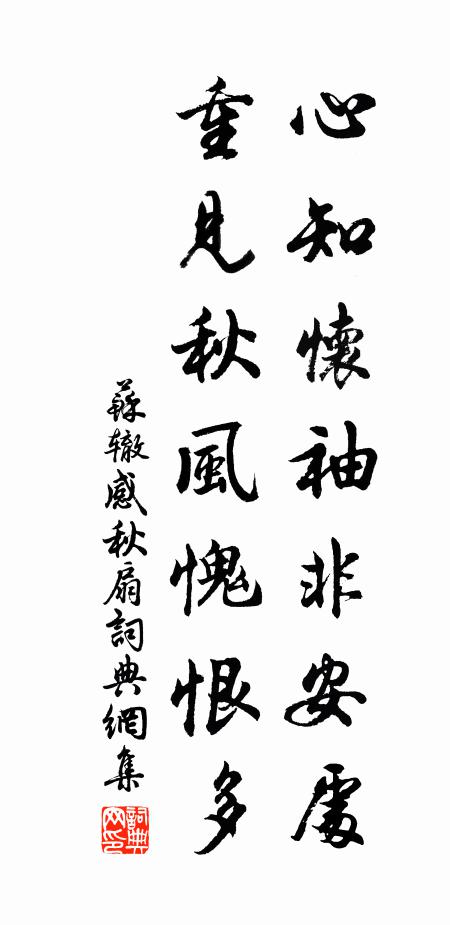 心知懷袖非安處
重見秋風愧恨多
蘇辙感秋扇詞典網集
詞典
网印